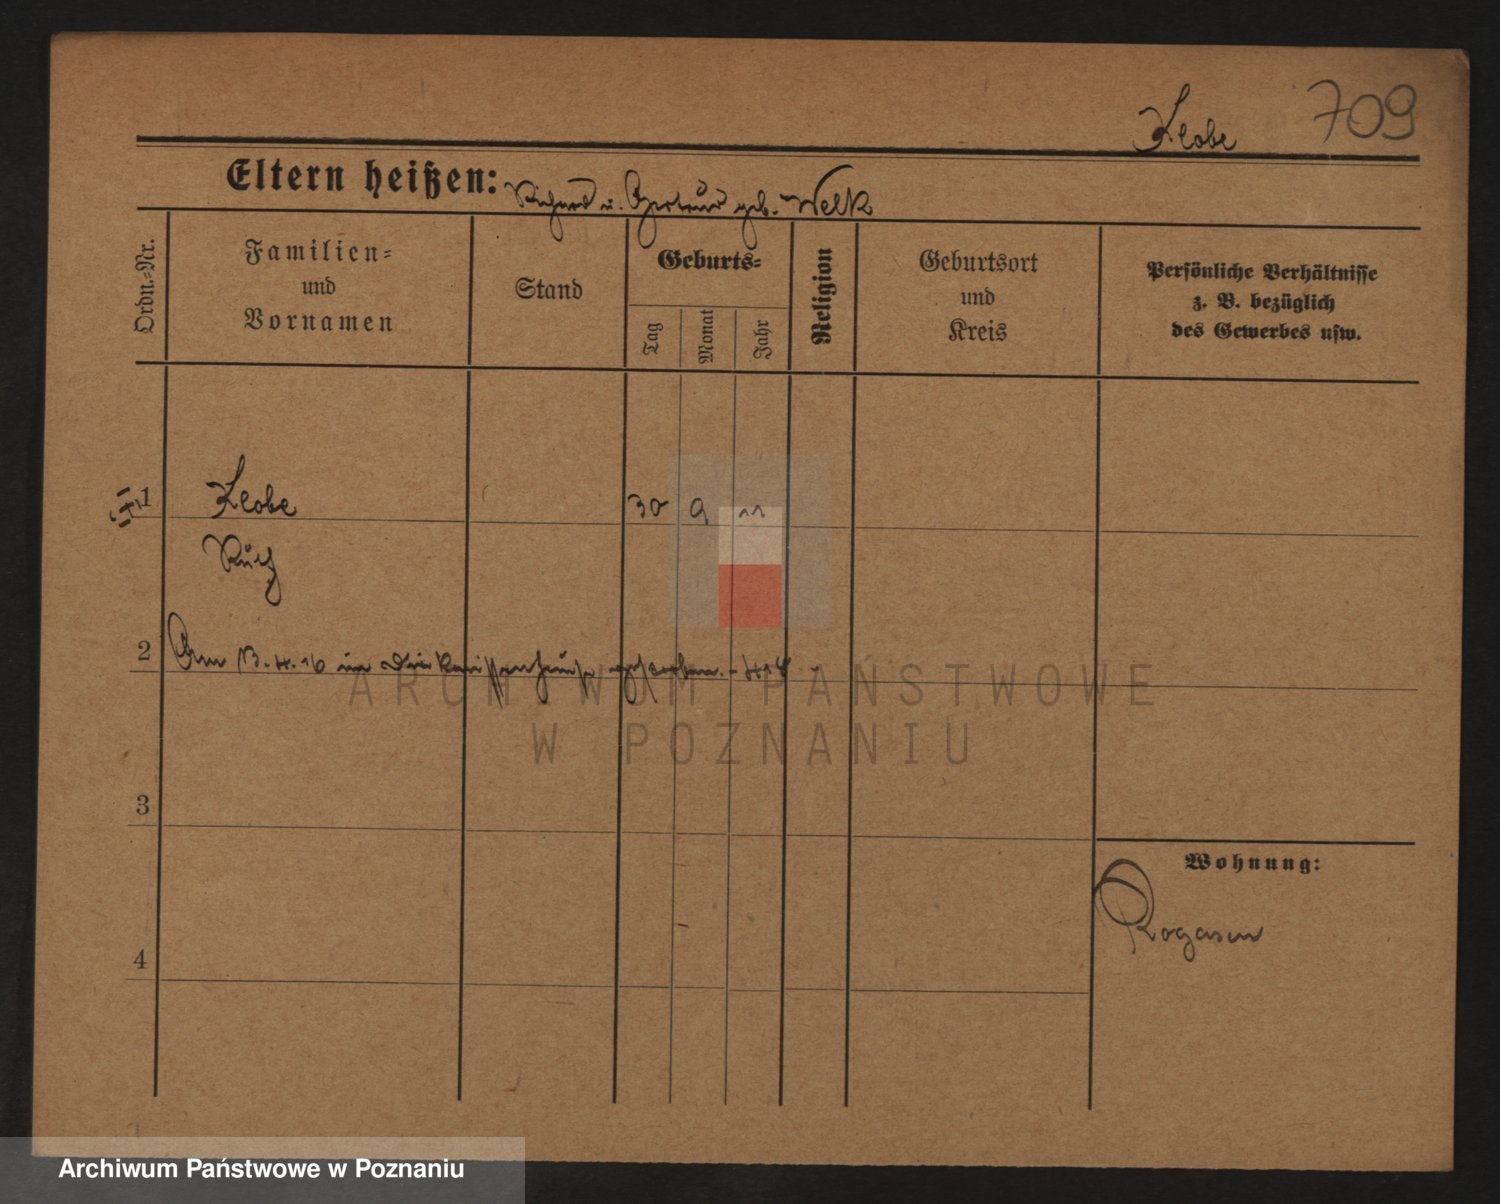 709
Klobe
Eltern heißen: Richard u. Gertrud geb. Welk
Ordn.-Nr.
Familien-
und
Vornamen
Stand
Geburts-
Tag
Monat
Jahr
Religion
Geburtsort
und
Kreis
Persönliche Verhältnisse
z. B. bezüglich
des Gewerbes usw.
1 Klobe 30 9 11
Ruth
2 Am 13.4.16 im Diakonissenhause gestorben.
3
4
Wohnung:
Rogasen
ARCHIWUM PAŃSTWOWE
W POZNANIU
Archiwum Państwowe w Poznaniu